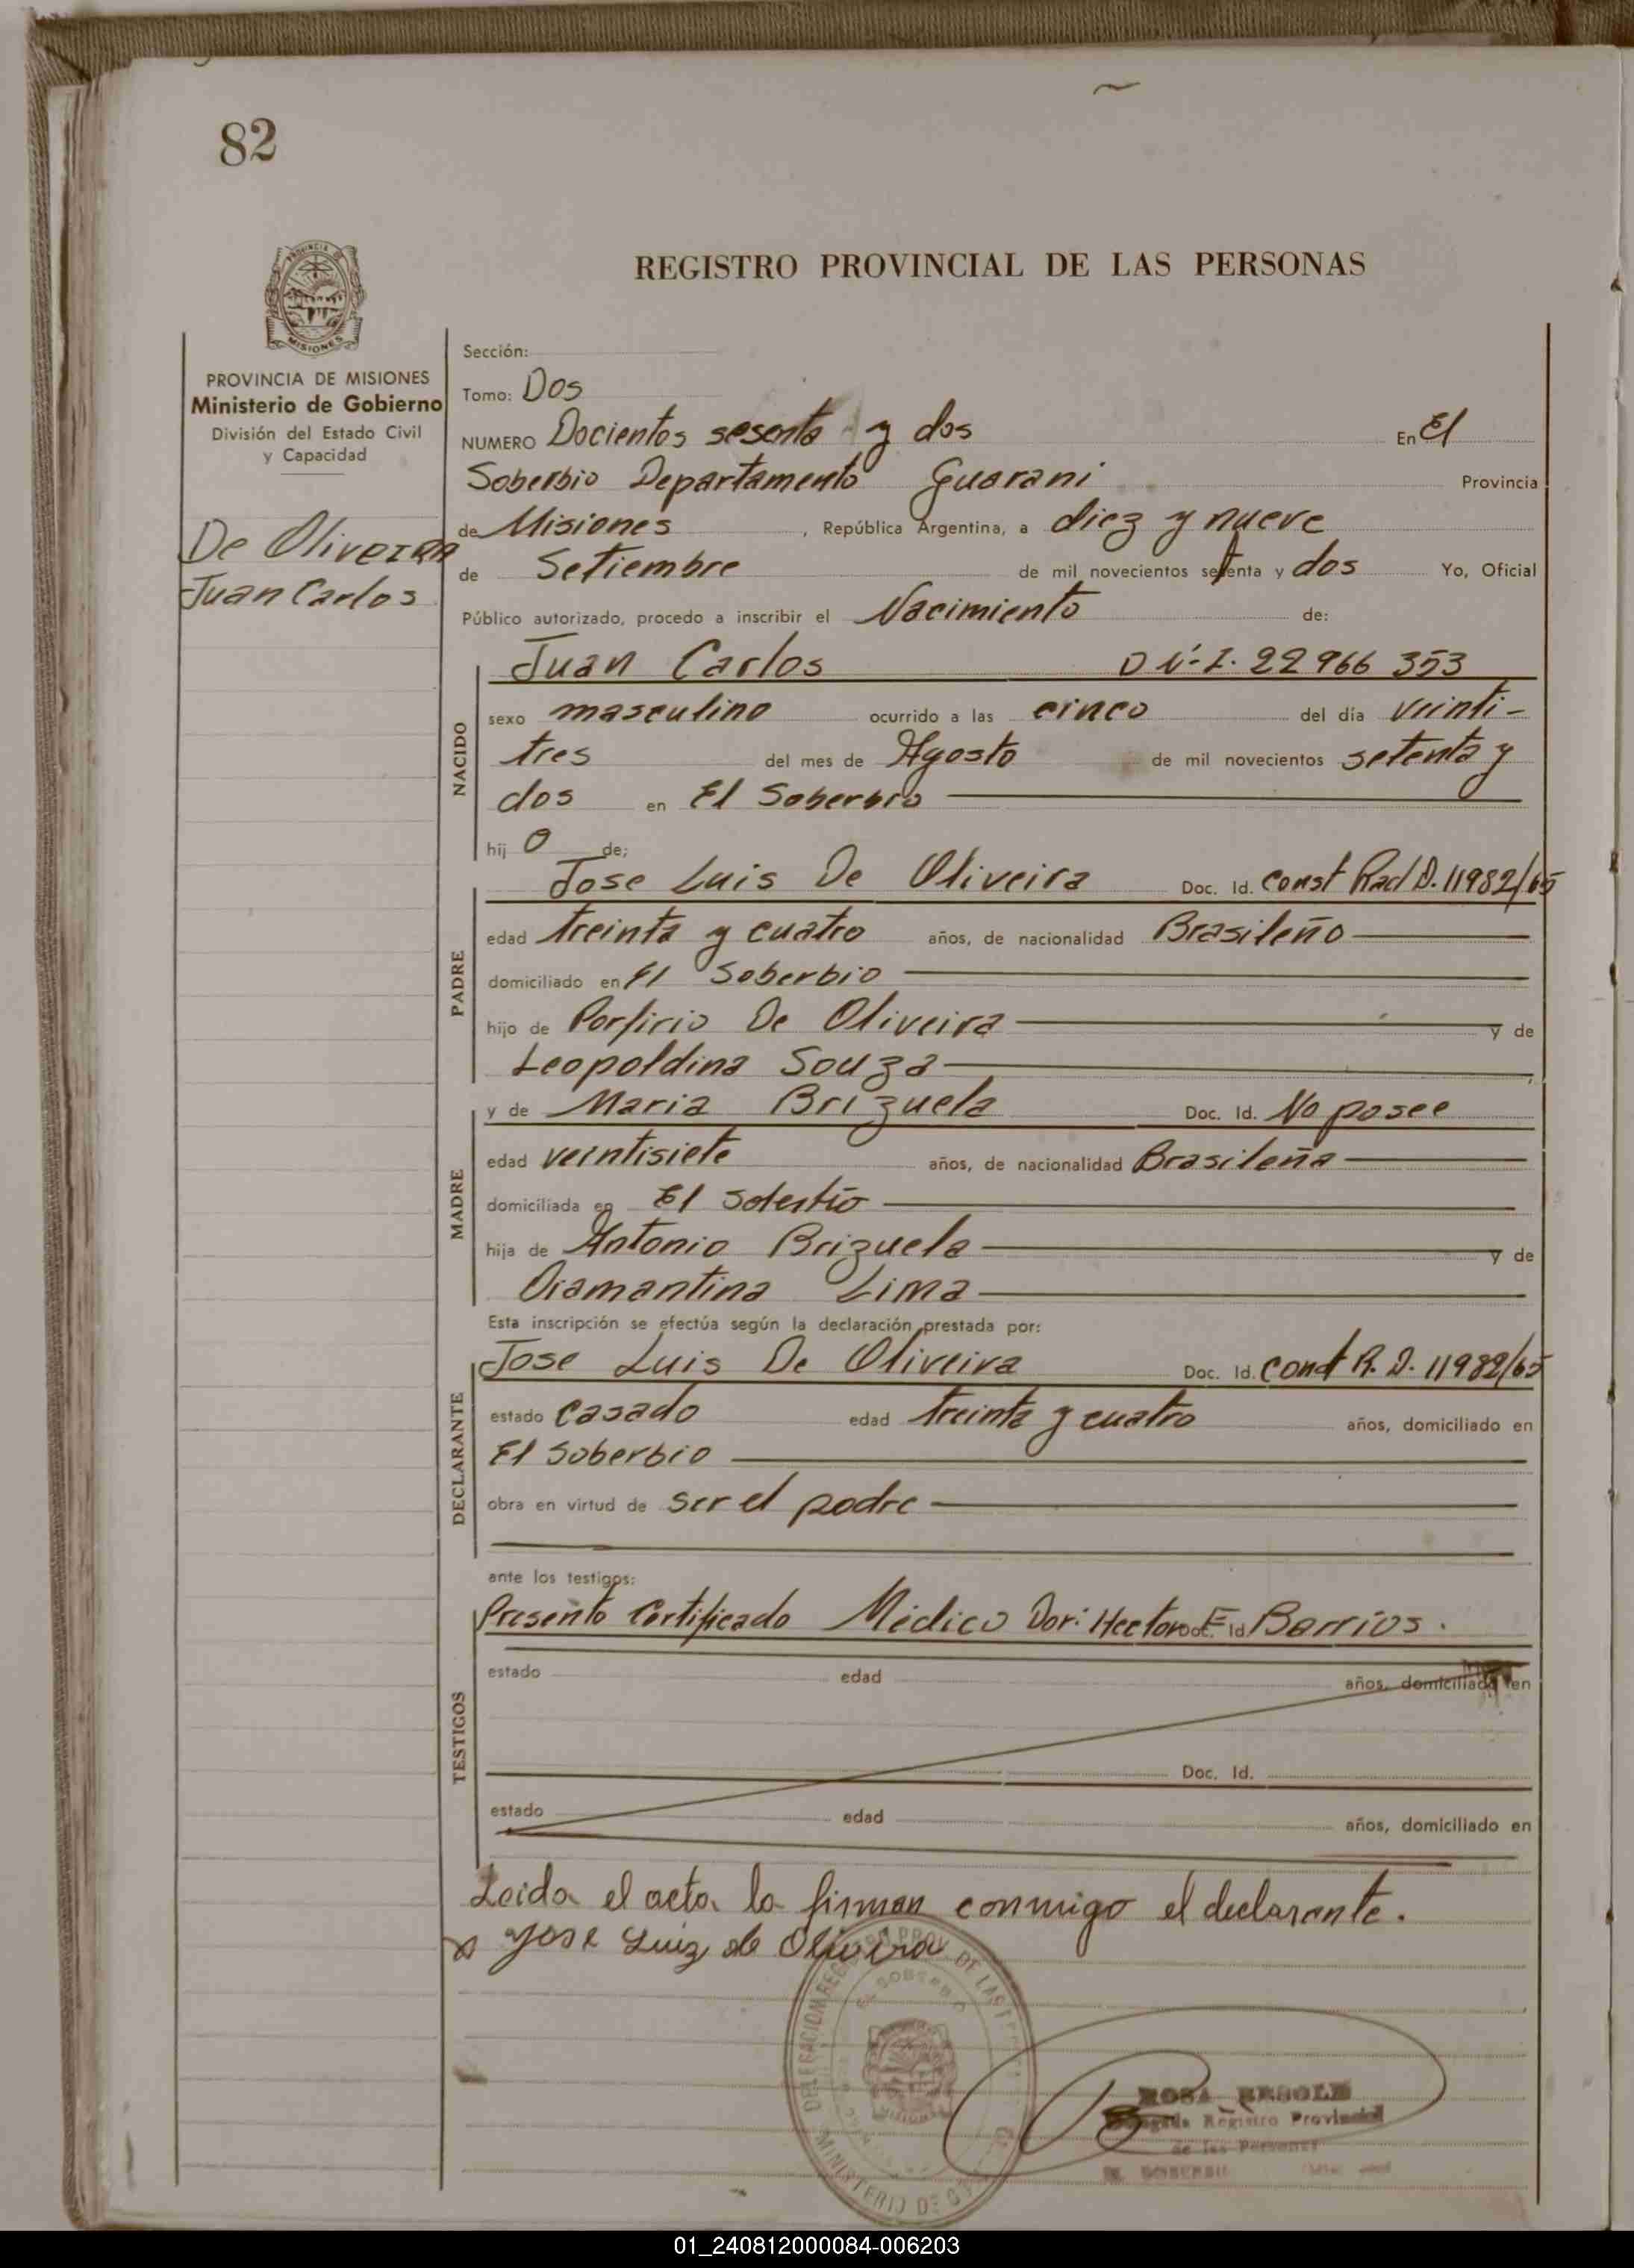 82
PROVINCIA DE
MISIONES
PROVINCIA DE MISIONES
Ministerio de Gobierno
División del Estado Civil
y Capacidad
De Oliveira
Juan Carlos
REGISTRO PROVINCIAL DE LAS PERSONAS
Sección:
Tomo: Dos
NUMERO Docientos sesenta y dos En El
Soberbio Departamento Guarani Provincia
de Misiones, República Argentina, a diez y nueve
de Setiembre de mil novecientos setenta y dos Yo, Oficial
Público autorizado, procedo a inscribir el Nacimiento de:
NACIDO
Juan Carlos D.N.I. 22966353
sexo masculino ocurrido a las cinco del día veinti-
tres del mes de Agosto de mil novecientos setenta y
dos en El Soberbio
hij o de;
PADRE
Jose Luis De Oliveira Doc. Id. Const Rad D. 11982/65
edad treinta y cuatro años, de nacionalidad Brasileño
domiciliado en El Soberbio
hijo de Porfirio De Oliveira y de
Leopoldina Souza
MADRE
y de Maria Brizuela Doc. Id. No posee
edad veintisiete años, de nacionalidad Brasileña
domiciliada en El Soberbio
hija de Antonio Brizuela y de
Diamantina Lima
Esta inscripción se efectúa según la declaración prestada por:
DECLARANTE
Jose Luis De Oliveira Doc. Id. Const R. D. 11982/65
estado casado edad treinta y cuatro años, domiciliado en
El Soberbio
obra en virtud de ser el padre
ante los testigos:
TESTIGOS
Presento Certificado Médico Dor: Hector E. Barrios. Doc. Id.
estado edad años, domiciliado en
Doc. Id.
estado edad años, domiciliado en
Leida el acta la firman conmigo el declarante.
x Jose Luiz de Oliveira
DELEGACION REGISTRO PROV. DE LAS
EL SOBERBIO
MISIONES
MINISTERIO DE
ROSA
Registro Provincial
de las Personas
EL SOBERBIO
01_240812000084-006203